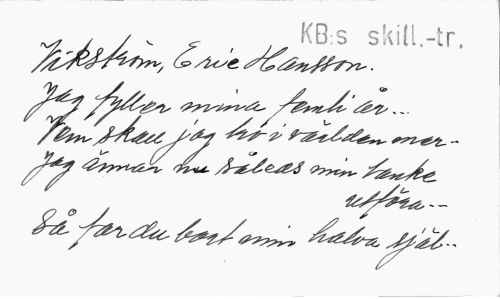 KB:s skill.-tr.
Vikström, Eric Hansson.
Jag fyller mina femti år...
Vem skall jag tro i världen mer-
Jag ämnar nu således min tanke
utföra--
Så far du bort min halva själ--